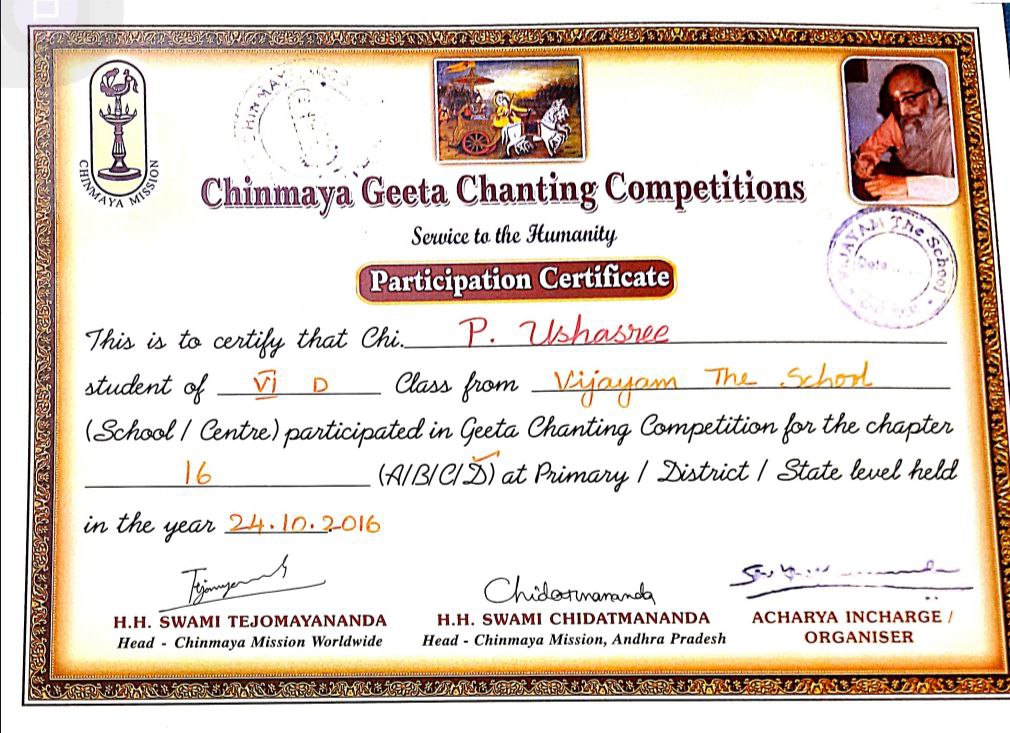 CHINMAYA MISSION
Chinmaya Geeta Chanting Competitions
Service to the Humanity
VIJAYAM The School
Date
Participation Certificate
This is to certify that Chi. P. Ushasree
student of VI D Class from Vijayam The School
(School / Centre) participated in Geeta Chanting Competition for the chapter
16 (A/B/C/D) at Primary / District / State level held
in the year 24.10.2016
Tejomayananda
Chidatmananda
H.H. SWAMI TEJOMAYANANDA
Head - Chinmaya Mission Worldwide
H.H. SWAMI CHIDATMANANDA
Head - Chinmaya Mission, Andhra Pradesh
ACHARYA INCHARGE /
ORGANISER